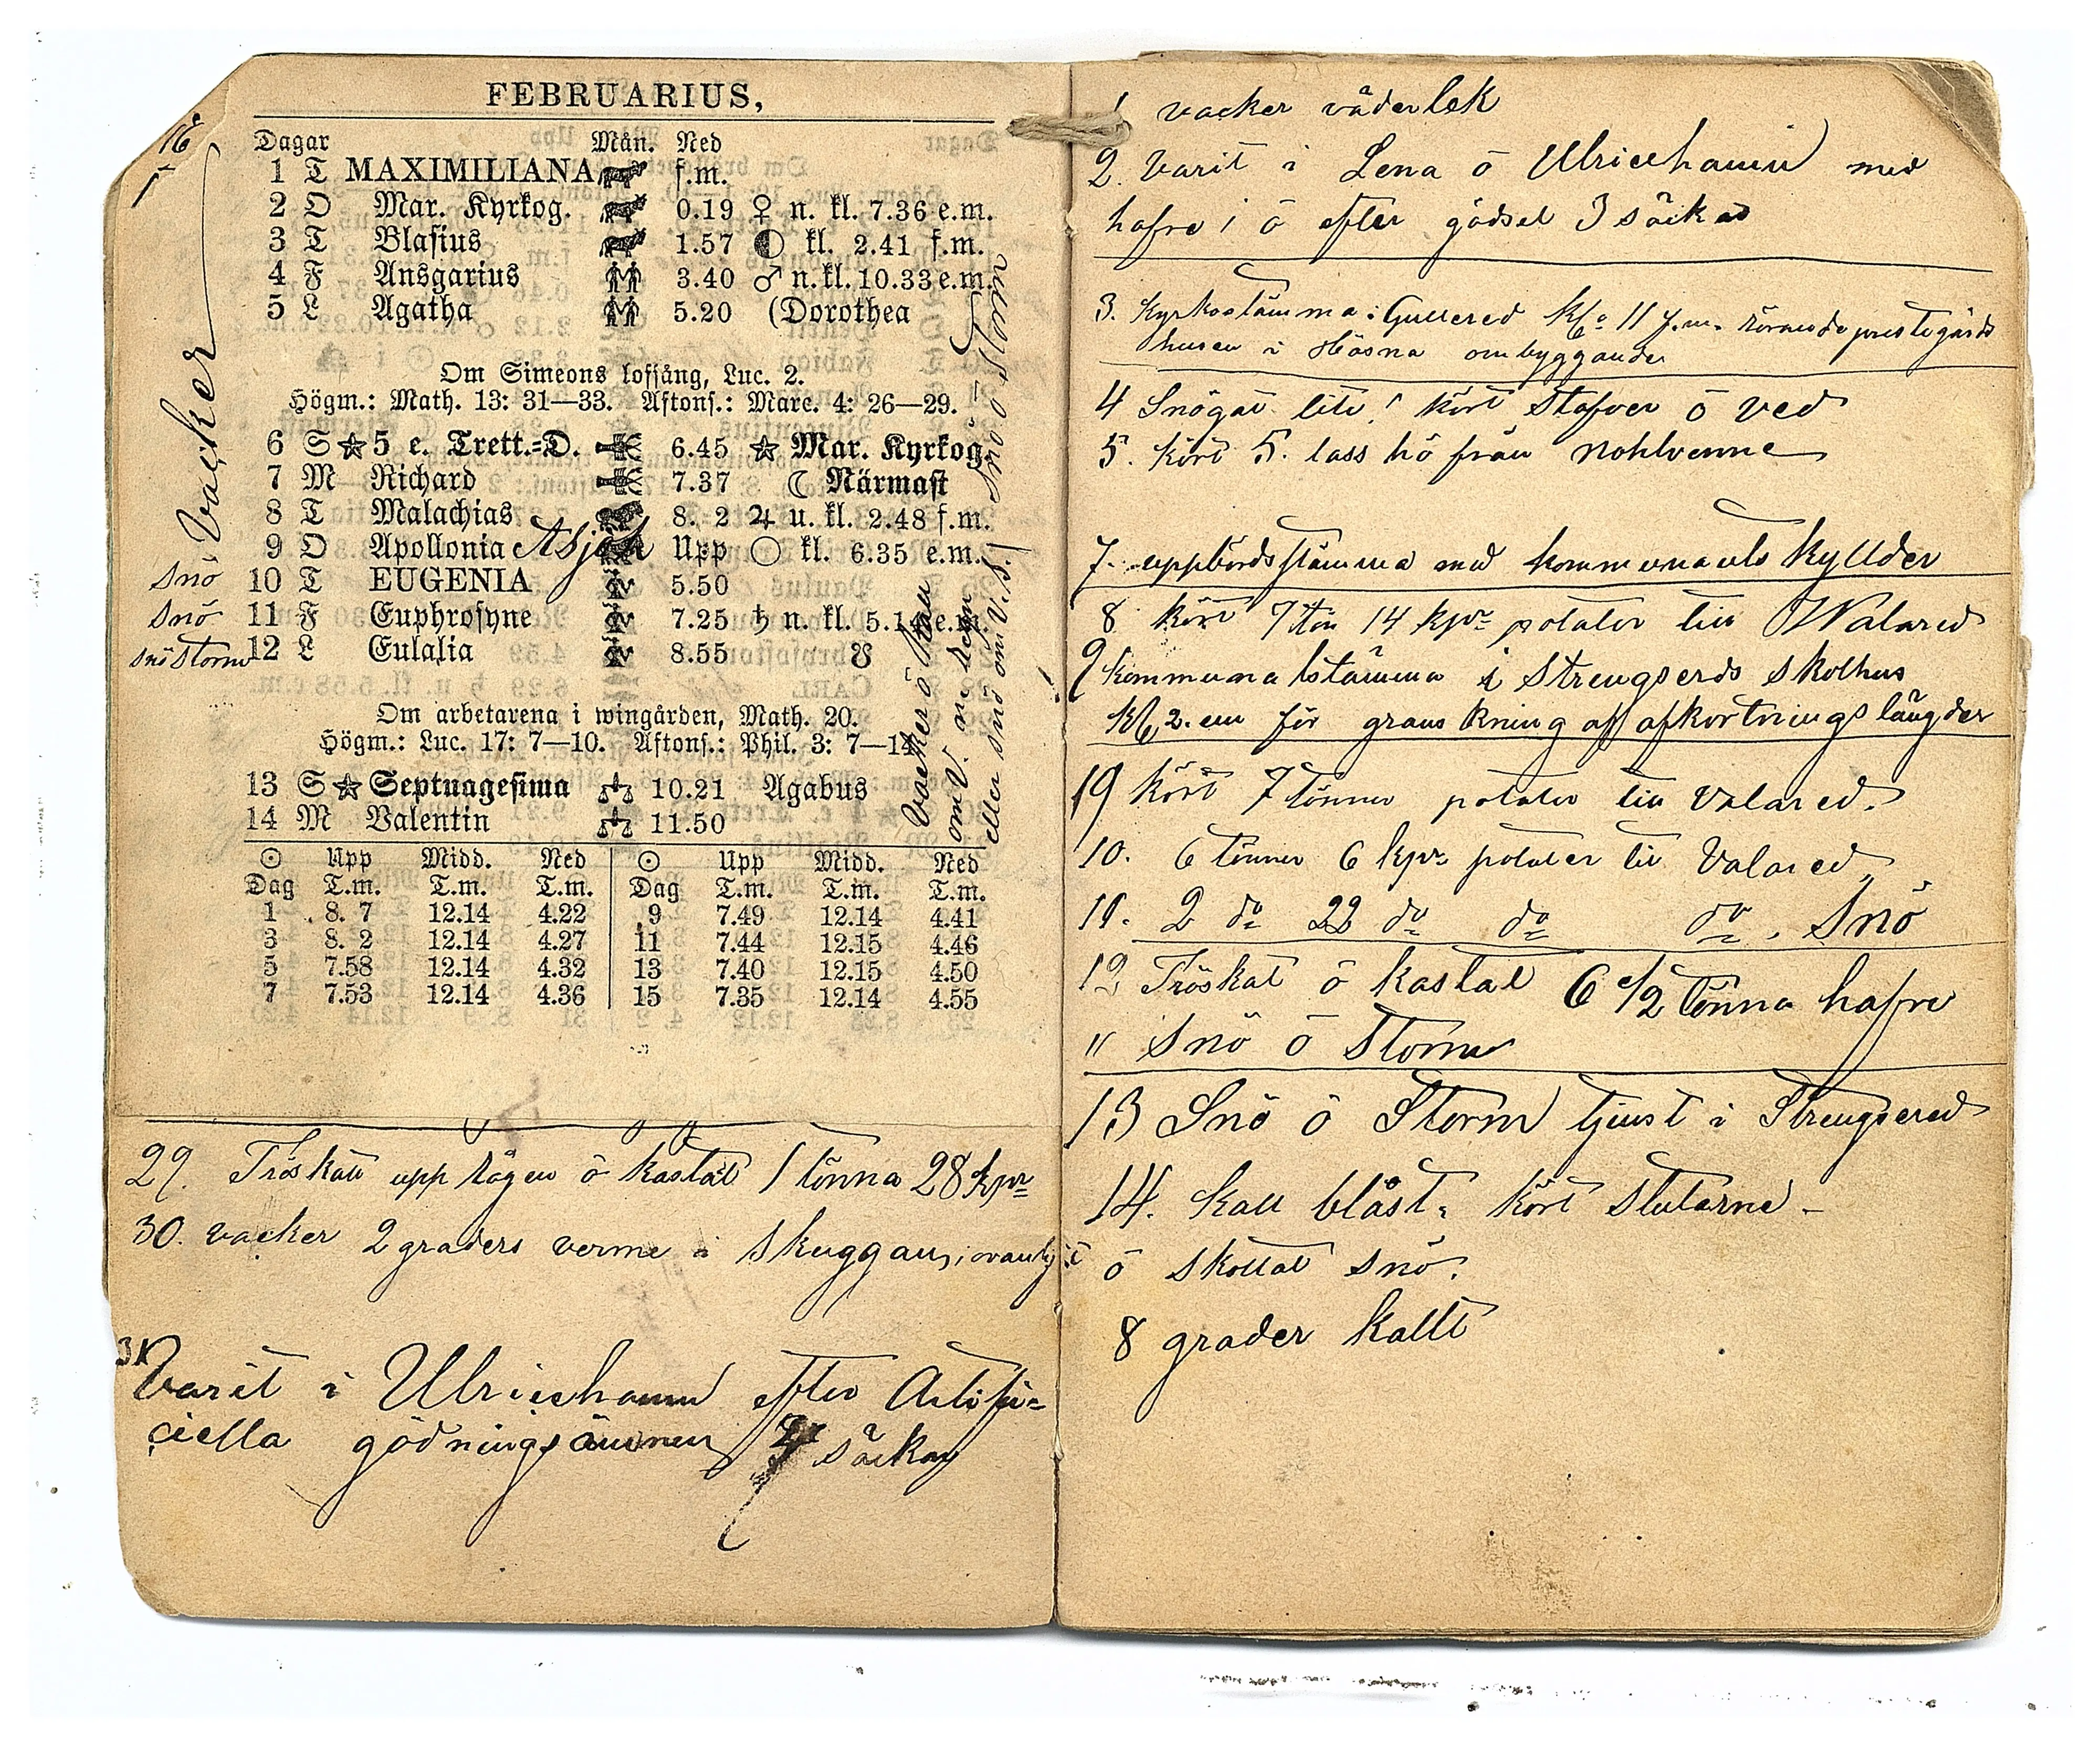 FEBRUARIUS,
Dagar Mån. Ned
1 T MAXIMILIANA f.m.
2 O Mar. Kyrkog. 0.19 ♀ n. kl. 7.36 e.m.
3 T Blasius 1.57 ◐ kl. 2.41 f.m.
4 F Ansgarius 3.40 ♂ n. kl. 10.33 e.m.
5 L Agatha 5.20 (Dorothea
Om Simeons lofsång, Luc. 2.
Högm.: Math. 13: 31—33. Aftons.: Marc. 4: 26—29.
6 S ☆ 5 e. Trett.=D. 6.45 ☆ Mar. Kyrkog.
7 M Richard 7.37 ☾ Närmast
8 T Malachias 8. 2 ♃ u. kl. 2.48 f.m.
9 O Apollonia Upp ○ kl. 6.35 e.m.
snö 10 T EUGENIA 5.50
snö 11 F Euphrosyne 7.25 ♄ n. kl. 5.14 e.m.
snöstorm 12 L Eulalia 8.55 ☋
Om arbetarena i wingården, Math. 20.
Högm.: Luc. 17: 7—10. Aftons.: Phil. 3: 7—14
13 S ☆ Septuagesima 10.21 Agabus
14 M Valentin 11.50
☉ Upp Midd. Ned ☉ Upp Midd. Ned
Dag T.m. T.m. T.m. Dag T.m. T.m. T.m.
1 8. 7 12.14 4.22 9 7.49 12.14 4.41
3 8. 2 12.14 4.27 11 7.44 12.15 4.46
5 7.58 12.14 4.32 13 7.40 12.15 4.50
7 7.53 12.14 4.36 15 7.35 12.14 4.55
Vacker
Vacker ö
eller snö om V.S. snö ö storm
29. Tröskat upp rågen ö kastat 1 tönna 28 kpr
30. vacker 2 graders verme i skuggan,
31 Varit i Ulricehamn efter Artifi=
ciella gödningsämnen säckar
1 vacker väderlek
2. Varit i Lena ö Ulricehamn med
hafre i ö efter gödsel 3 säckar
3. Kyrkostämma i Gullered Kl. 11 f.m. rörande prestegårds
husen i Hösna ombyggander
4 Snögat lite! kört Stafver ö Ved
5. kört 5. lass hö från nohlvenne
7. uppbördsstämma med kommunalskyllder
8 kört 7 tön 14 kpr potater till Walared
9 kommunalstämma i Strengserds skolhus
Kl. 2. em för granskning af afkortningslängder
19 kört 7 tönner potater till Valared.
10. 6 tönner 6 kpr potater till Valared
11. 2 do 22 do do do, Snö
12 Tröskat ö kastat 6 1/2 tönna hafre
" Snö ö Storm
13 Snö ö Storm tjenst i Strengsered
14. Kall blåst. kört Stutarne -
ö skottat snö.
8 grader kallt